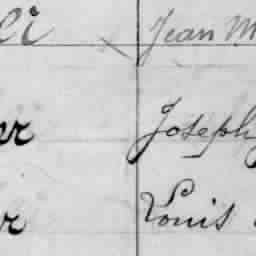 Jean M
er Joseph
r Louis